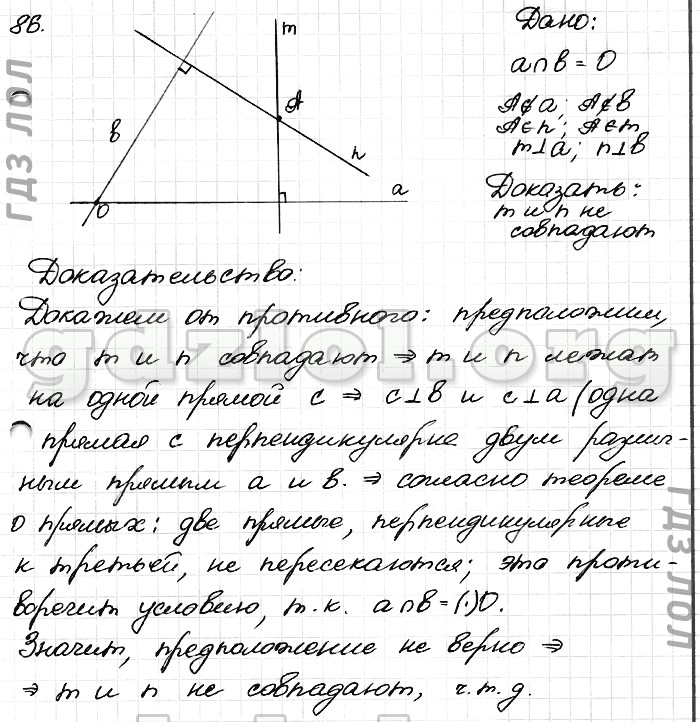 86.
m
A
в
n
a
O
Дано:
a∩в = O
A∉a; A∉в
A∈n; A∈m
m⊥a; n⊥в
Доказать:
m и n не
совпадают
Доказательство:
Докажем от противного: предположим,
что m и n совпадают ⇒ m и n лежат
на одной прямой c ⇒ c⊥в и c⊥a (одна
прямая c перпендикулярна двум различ-
ным прямым a и в. ⇒ согласно теореме
о прямых: две прямые, перпендикулярные
к третьей, не пересекаются; это проти-
воречит условию, т.к. a∩в=(·)O.
Значит, предположение не верно ⇒
⇒ m и n не совпадают, ч.т.д.
гдз лол
gdzlol.org
гдз лол